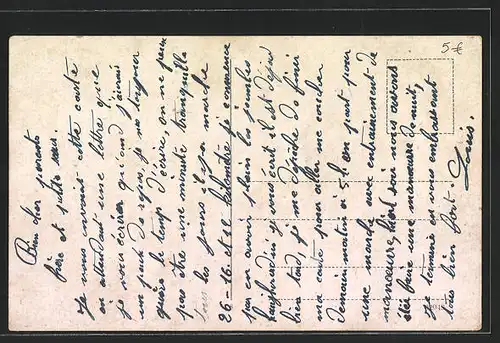 5 €
Bien cher parents
frère et petite sœur.
Je vous envoit cette carte
en attendant une lettre que
je vous écrirai quand j'aurai
un peu de repos, je ne
guère le temp d'écrire, on ne peux
pas être une minute tranquille
tous les jours il y a marche
26-16 et kilomètre je commence
par en avoir plein les jambes
haujourd'hui je vous écrit il est déjas
bien tard, je me dépèche de finir
ma carte pour aller me coucher
demain matin à 5 h on part pour
une marche avec entrainement de
manœuvre, hier soir nous avons
été faire une manœuvre de nuit,
je termine en vous embrassant
tous bien fort.
Louis.